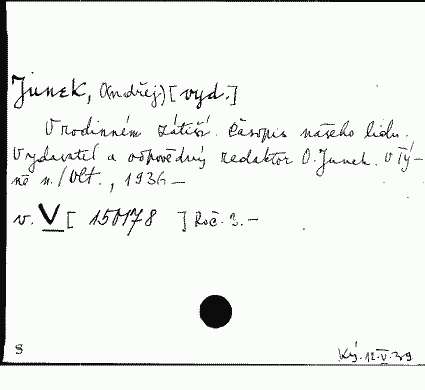 Junek, (Ondřej) [vyd.]
V rodinném zátiší. Časopis našeho lidu.
Vydavatel a odpovědný redaktor O. Junek. V Tý-
ně n./Vlt., 1936 —
v. V [ 150178 ] Roč. 3. —
8
Ký. 12.V.39